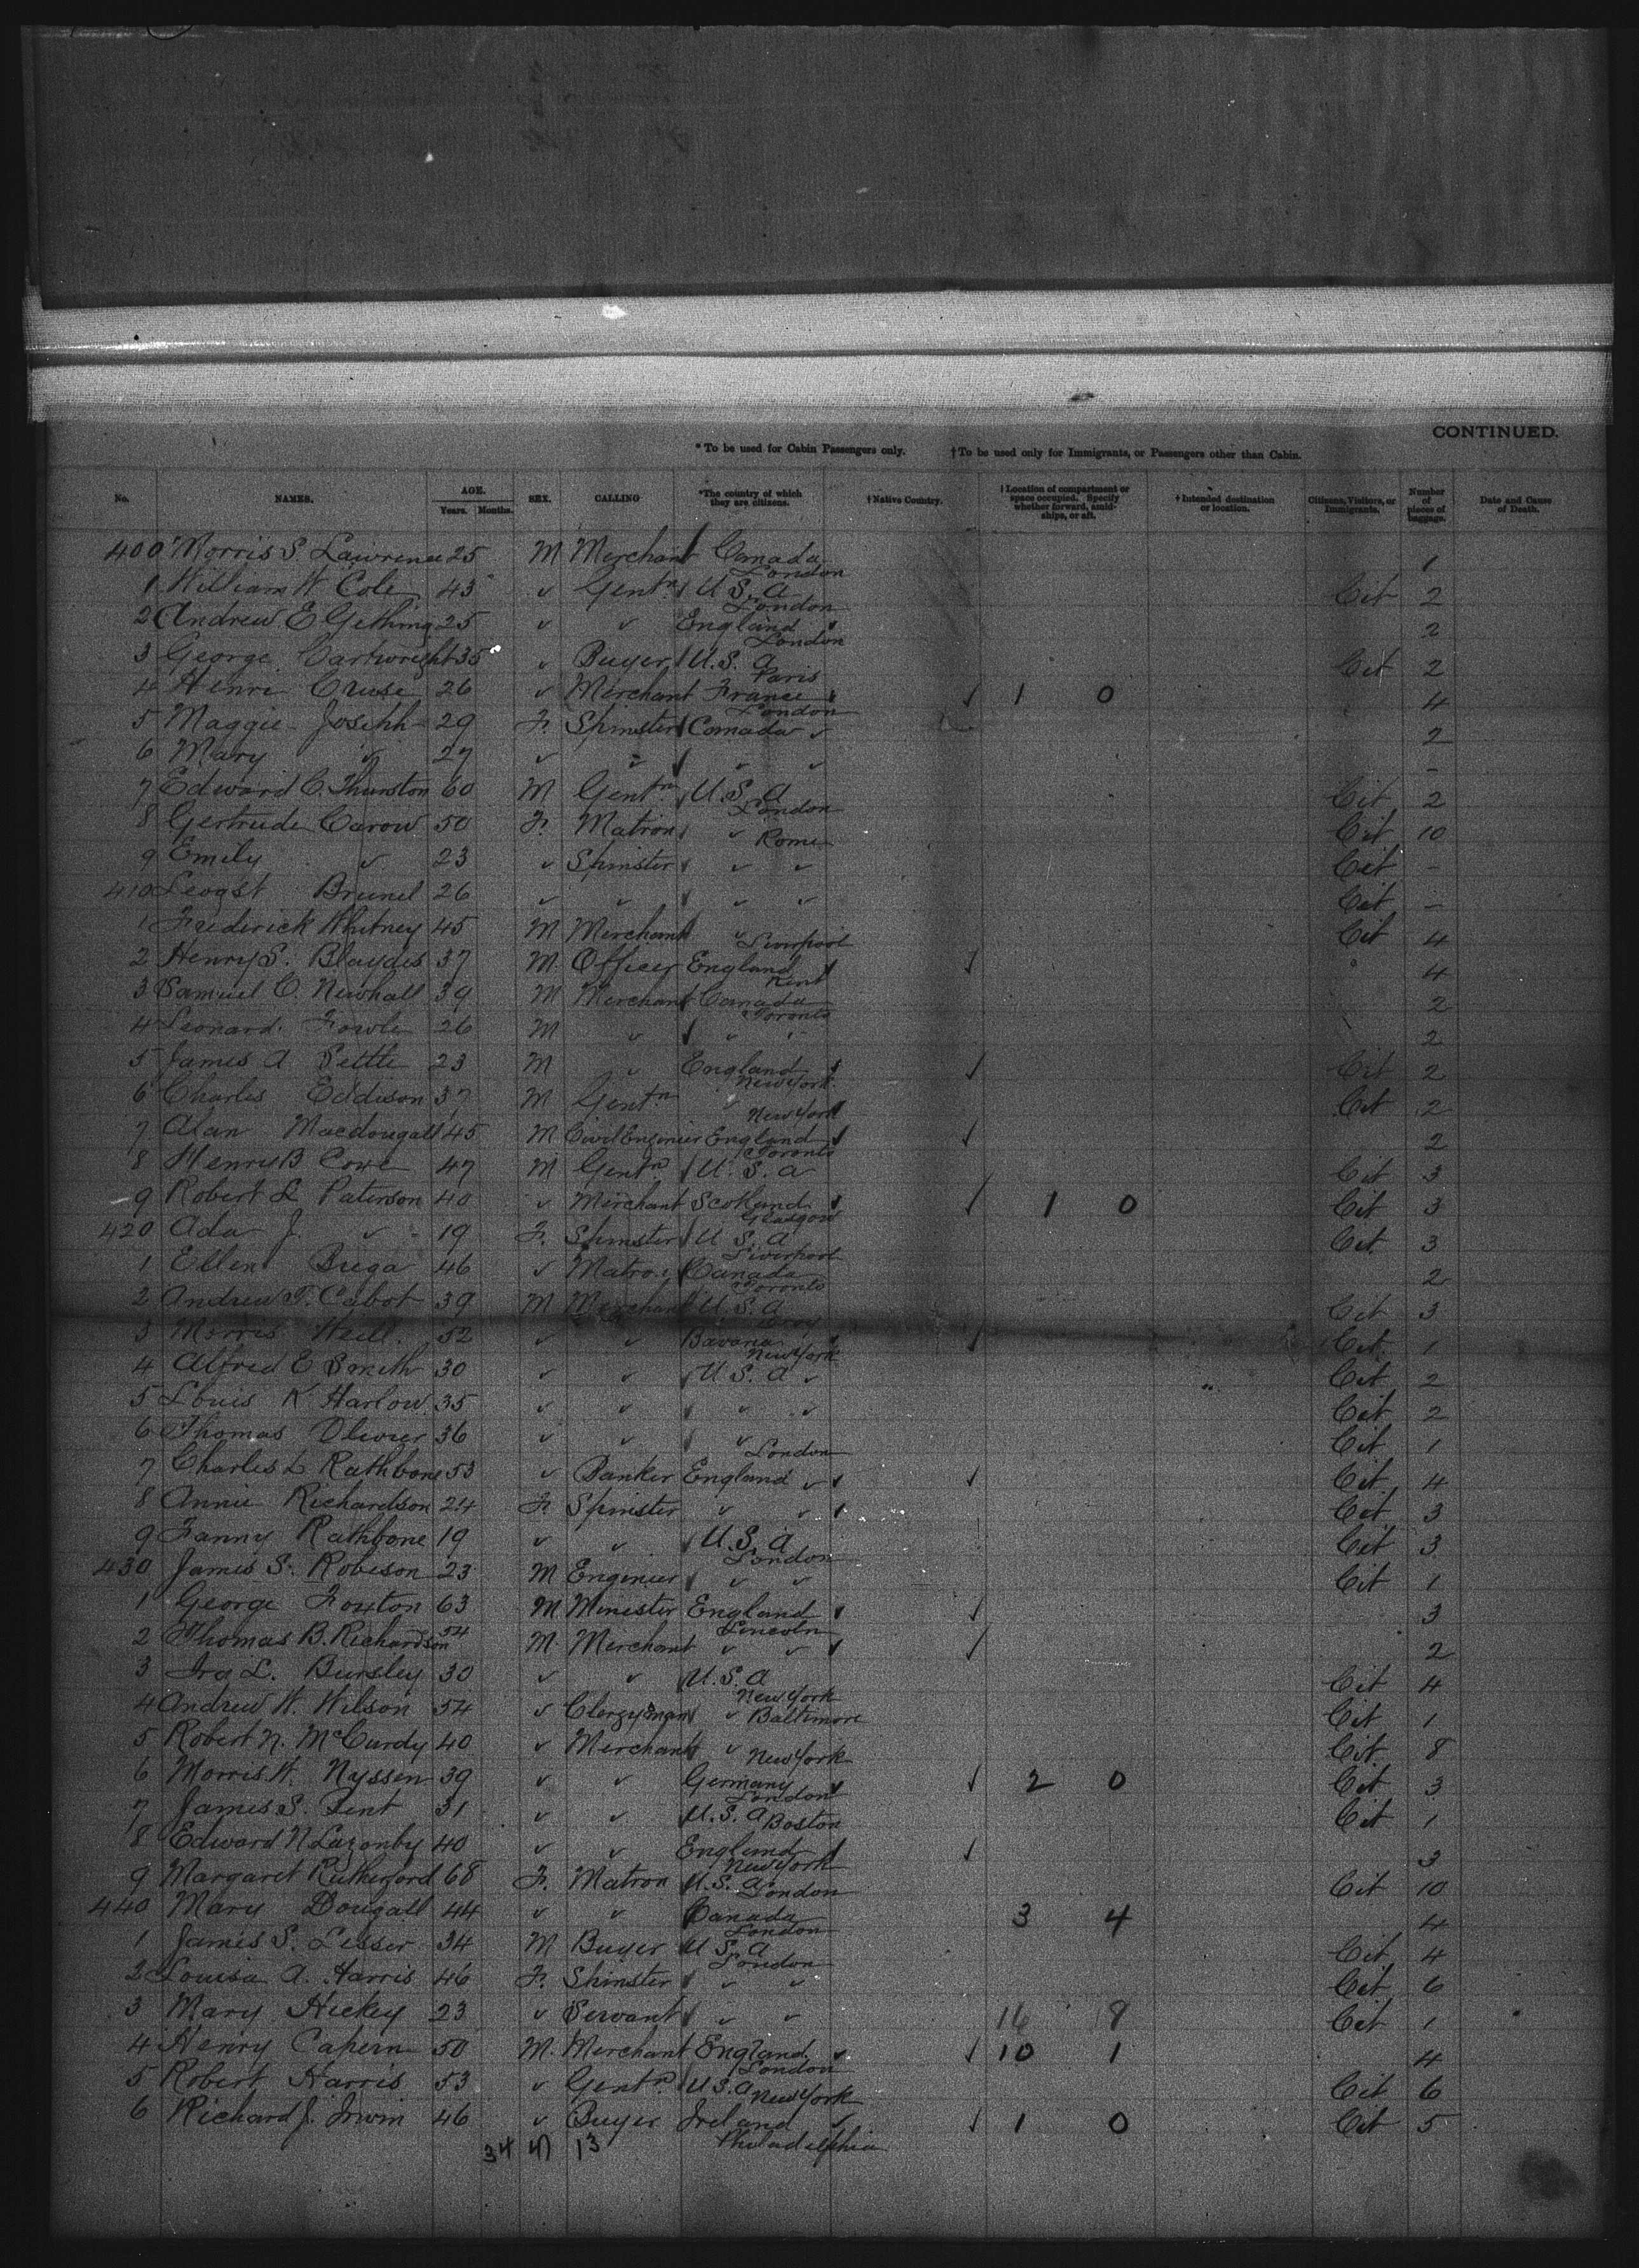 CONTINUED.
* To be used for Cabin Passengers only. † To be used only for Immigrants, or Passengers other than Cabin.
No. NAMES. AGE. Years. Months. SEX. CALLING *The country of which they are citizens. † Native Country. † Location of compartment or space occupied. Specify whether forward, amidships, or aft. † Intended destination or location. Citizens, Visitors, or Immigrants. Number of pieces of baggage. Date and Cause of Death.
400 Morris S. Lawrence 25 M Merchant Canada London 1
1 William W Cole 43 ✓ Gentn U.S.A London Cit 2
2 Andrew E Gething 25 ✓ ✓ England London 2
3 George Cartwright 35 ✓ Buyer U.S.A Paris Cit 2
4 Henri Cruse 26 ✓ Merchant France London ✓ 1 0 4
5 Maggie Joseph 29 F. Spinster Canada ✓ 2
6 Mary ✓ 27 ✓ ✓ ✓ ✓ -
7 Edward C. Thurston 60 M Gentn U.S.A London Cit 2
8 Gertrude Carow 50 F. Matron ✓ Rome Cit 10
9 Emily ✓ 23 ✓ Spinster ✓ ✓ Cit -
410 Brunel 26 ✓ ✓ ✓ ✓ Cit -
1 Frederick Whitney 45 M Merchant ✓ Liverpool Cit 4
2 Henry S. Blaydes 37 M. Officer England Kent ✓ 4
3 Samuel C. Newhall 39 M Merchant Canada Toronto 2
4 Leonard Fowle 26 M ✓ ✓ ✓ 2
5 James A Settle 23 M ✓ England New York ✓ Cit 2
6 Charles Eddison 37 M Gentn ✓ New York Cit 2
7 Alan Macdougall 45 M Civil Engineer England Toronto ✓ 2
8 Henry B Coxe 47 M Gentn U.S.A Cit 3
9 Robert L Paterson 40 ✓ Merchant Scotland Glasgow ✓ 1 0 Cit 3
420 Ada J. ✓ 19 F. Spinster U S. A Liverpool Cit 3
1 Ellen 46 ✓ Matron Canada Toronto 2
2 Andrew T. Cabot 39 M Merchant U.S.A Cit 3
3 Morris Weill. 52 ✓ ✓ Bavaria New York ✓ Cit 1
4 Alfred E Smith 30 ✓ ✓ U.S.A ✓ Cit 2
5 Louis K Harlow 35 ✓ ✓ ✓ ✓ Cit 2
6 Thomas Olivier 36 ✓ ✓ ✓ London Cit 1
7 Charles L Rathbone 53 ✓ Banker England ✓ ✓ Cit 4
8 Annie Richardson 24 F. Spinster ✓ ✓ Cit 3
9 Fanny Rathbone 19 ✓ ✓ U.S.A London Cit 3
430 James S. Robeson 23 M Engineer ✓ ✓ Cit 1
1 George Foxton 63 M Minister England Lincoln ✓ 3
2 Thomas B. Richardson 54 M. Merchant ✓ ✓ ✓ 2
3 Ira L. Bursley 30 ✓ ✓ U.S.A New York Cit 4
4 Andrew W. Wilson 54 ✓ Clergyman ✓ Baltimore Cit 1
5 Robert N. McCurdy 40 ✓ Merchant ✓ New York Cit 8
6 Morris W. Nyssen 39 ✓ ✓ Germany London ✓ 2 0 Cit 3
7 James S. 31 ✓ ✓ U.S.A Boston Cit 1
8 Edward N Lazonby 40 ✓ ✓ England New York ✓ 3
9 Margaret Rutherford 68 F. Matron U.S.A London Cit 10
440 Mary Dougall 44 ✓ ✓ Canada London 3 4 4
1 James S. Lesser 34 M Buyer U.S.A London Cit 4
2 Louisa A. Harris 46 F. Spinster ✓ ✓ Cit 6
3 Mary Hickey 23 ✓ Servant ✓ ✓ 16 8 Cit 1
4 Henry Capern 50 M. Merchant England London ✓ 10 1 4
5 Robert Harris 53 ✓ Gentn U.S.A New York Cit 6
6 Richard J. Irwin 46 ✓ Buyer Ireland ✓ ✓ 1 0 Cit 5
34 47 13 Philadelphia